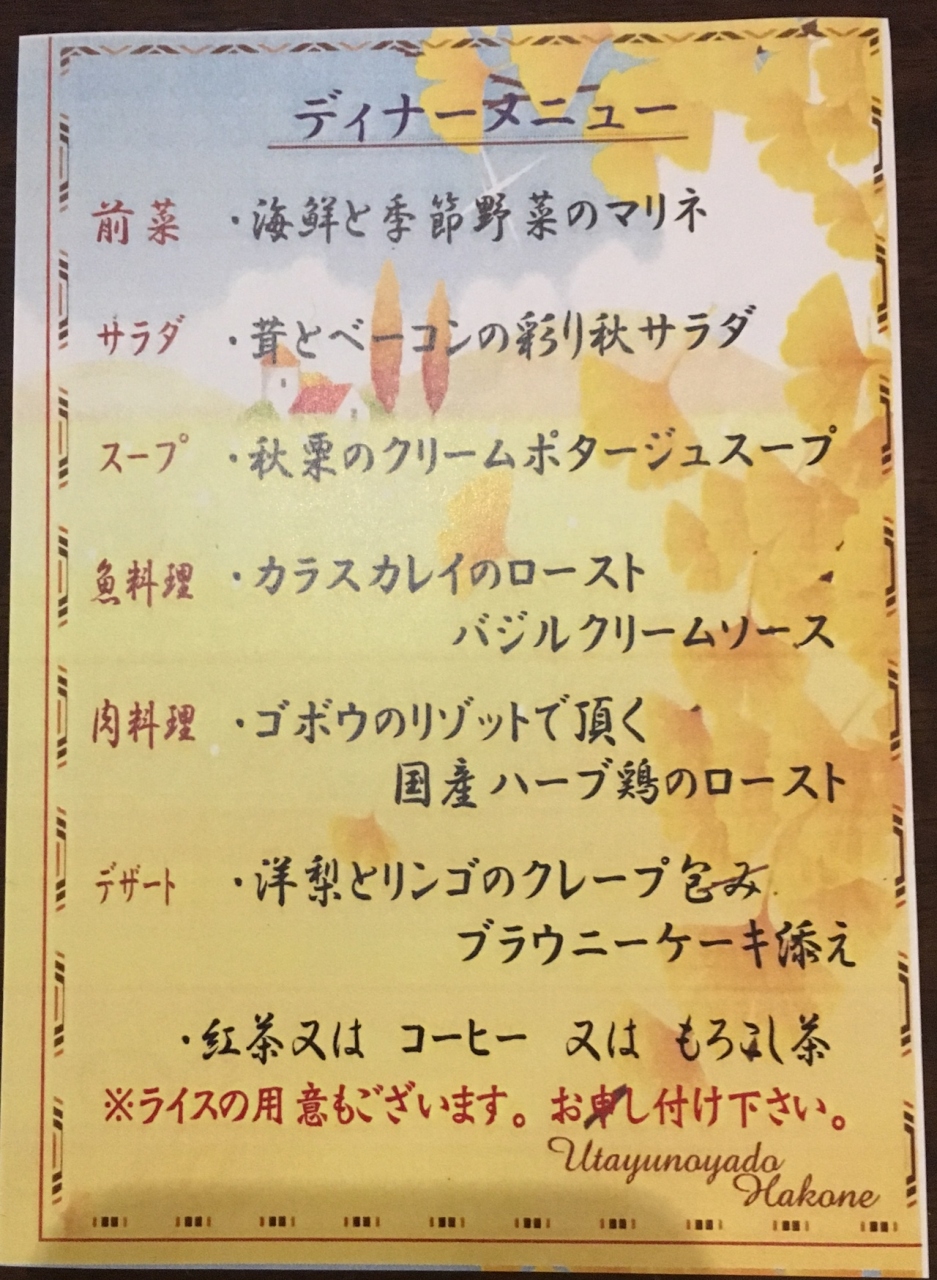 ディナーメニュー
前菜 ・海鮮と季節野菜のマリネ
サラダ ・茸とベーコンの彩り秋サラダ
スープ ・秋栗のクリームポタージュスープ
魚料理 ・カラスカレイのロースト
バジルクリームソース
肉料理 ・ゴボウのリゾットで頂く
国産ハーブ鶏のロースト
デザート ・洋梨とリンゴのクレープ包み
ブラウニーケーキ添え
・紅茶又は コーヒー 又は もろこし茶
※ライスの用意もございます。お申し付け下さい。
Utayunoyado
Hakone